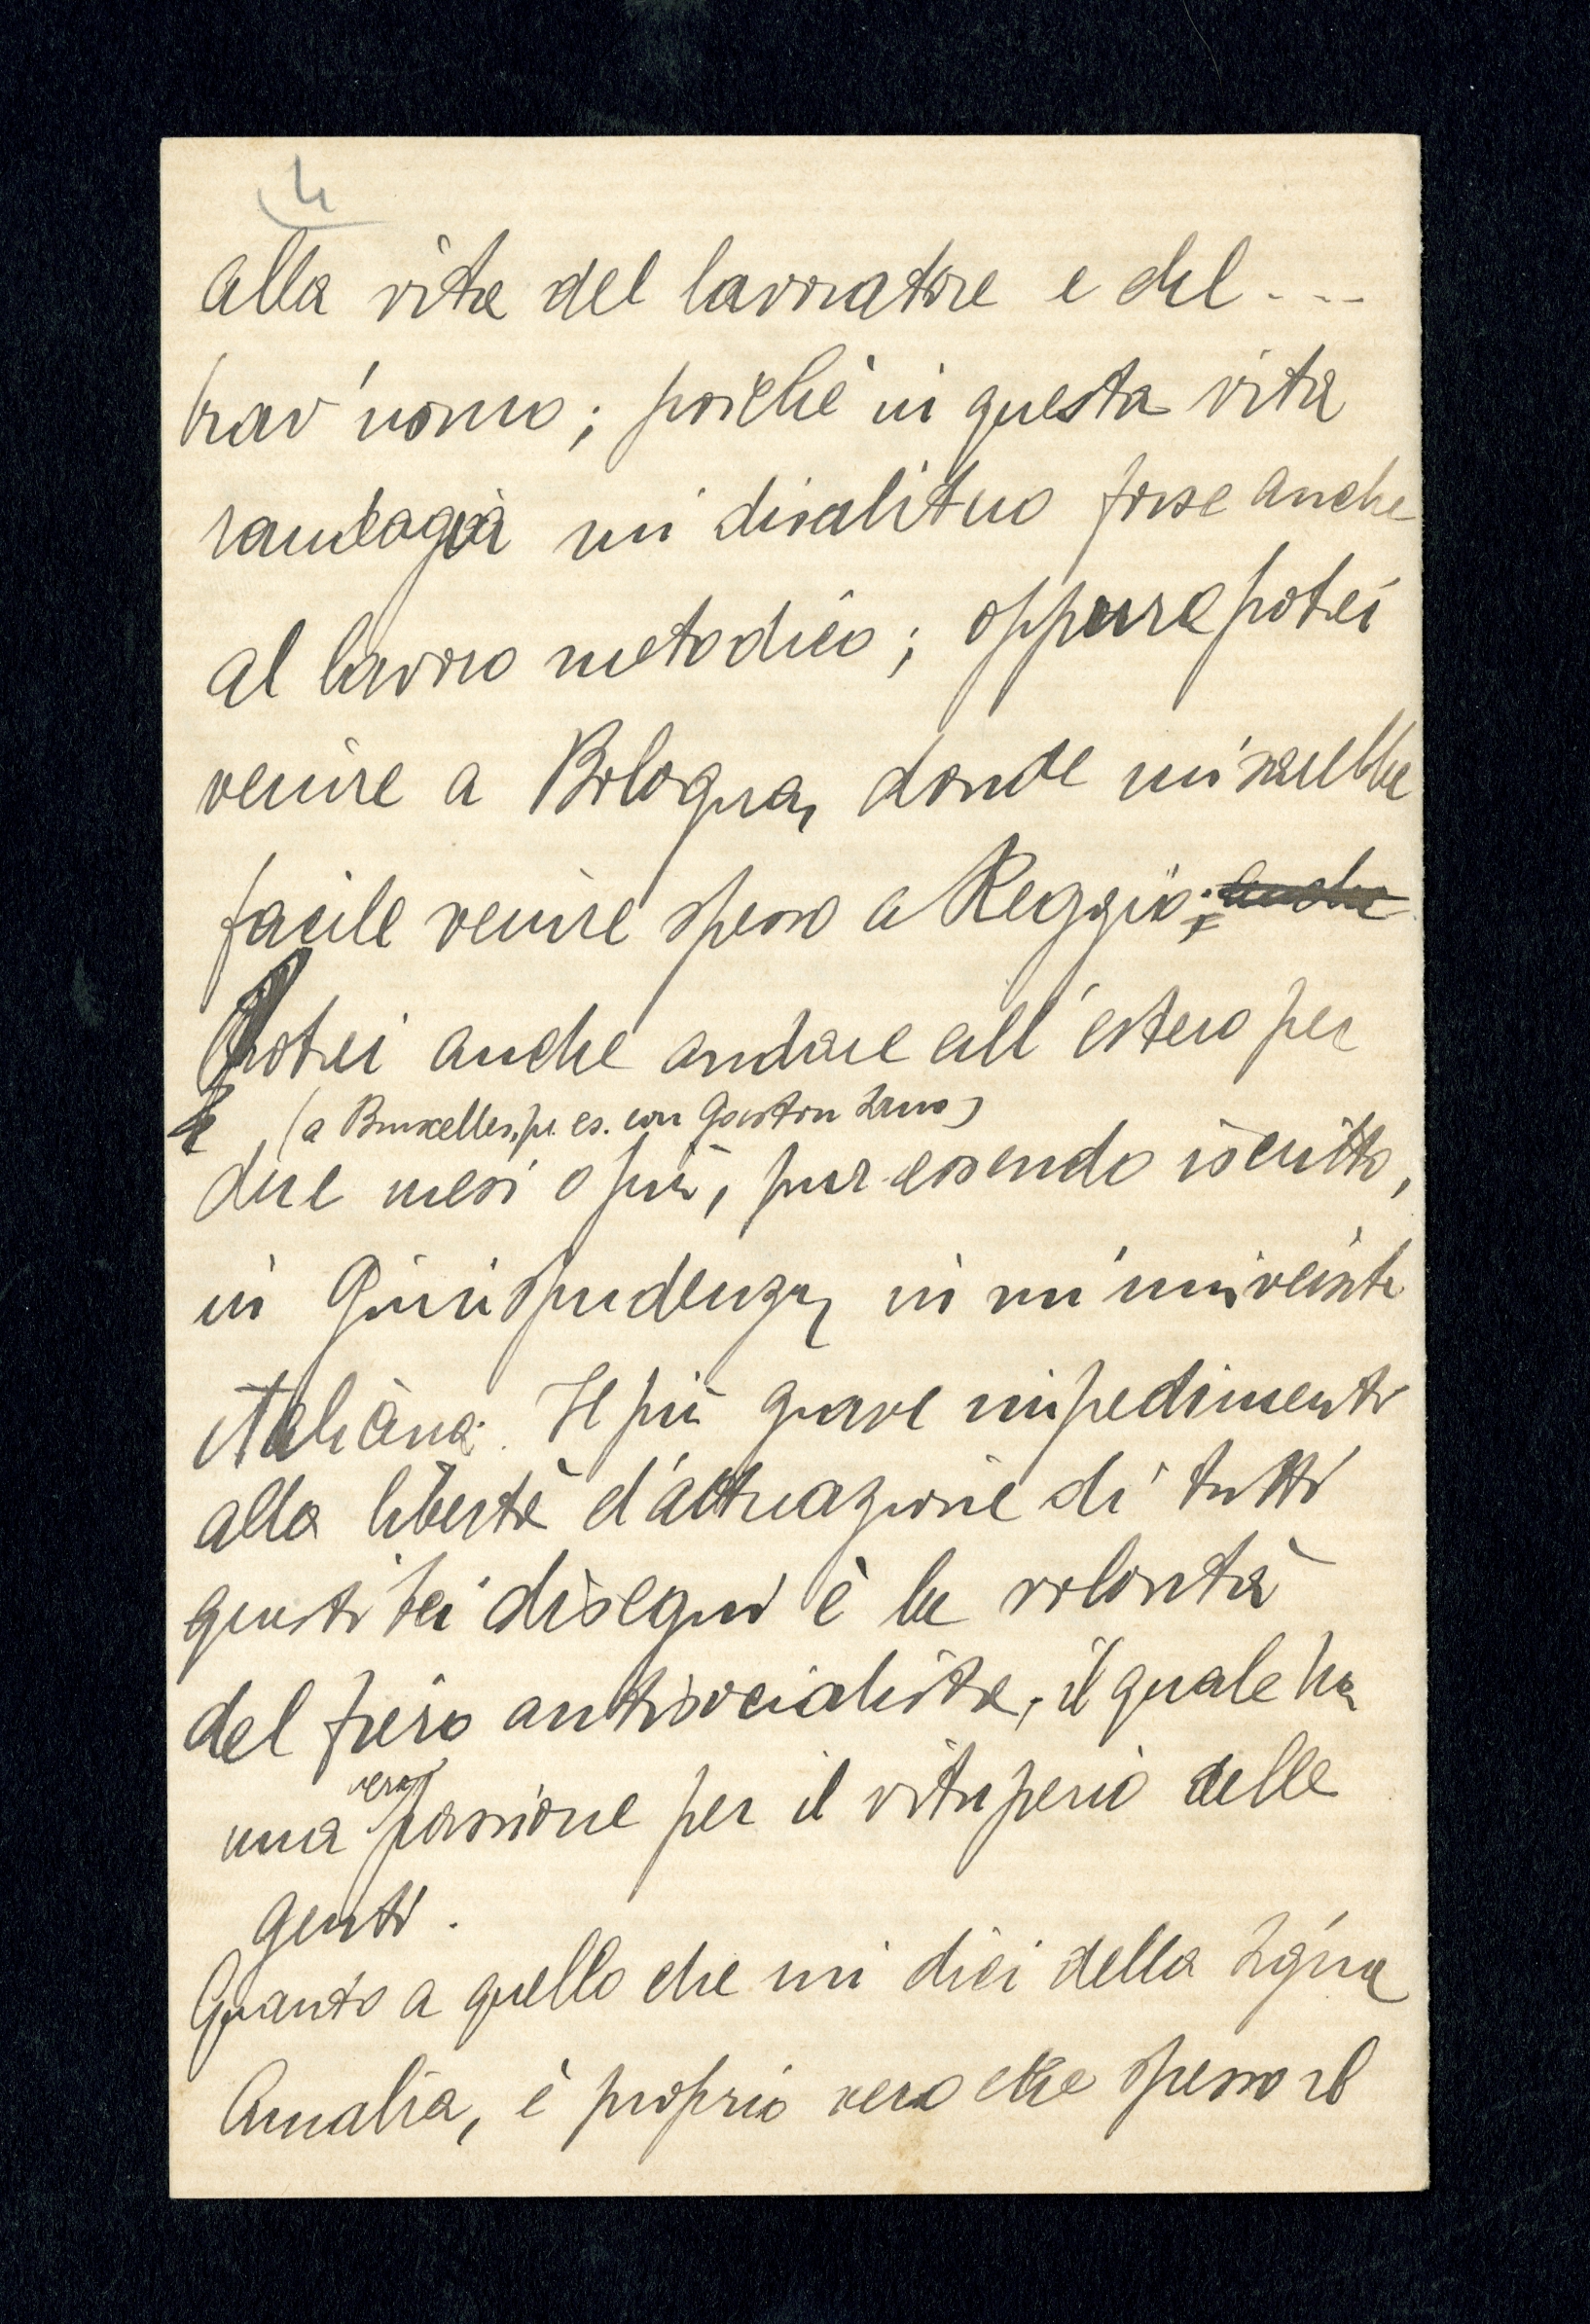 4
alla vita del lavoratore e del ...
brav'uomo; poichè in questa vita
randagia mi disabituo forse anche
al lavoro metodico; oppure potrei
venire a Bologna, donde mi sarebbe
facile venire spesso a Reggio; anche
Potrei anche andare all'estero per
(a Bruxelles, p. es. con Gaston
due mesi o più, pur essendo iscritto,
in Giurisprudenza, in un'università
italiana. Il più grave impedimento
alla libertà d'attuazione di tutti
questi bei disegni è la volontà
del fiero antisocialista, il quale ha
una vera passione per il vituperio delle
genti.
Quanto a quello che mi dici della Sig.na
Amalia, è proprio vero che spesso il